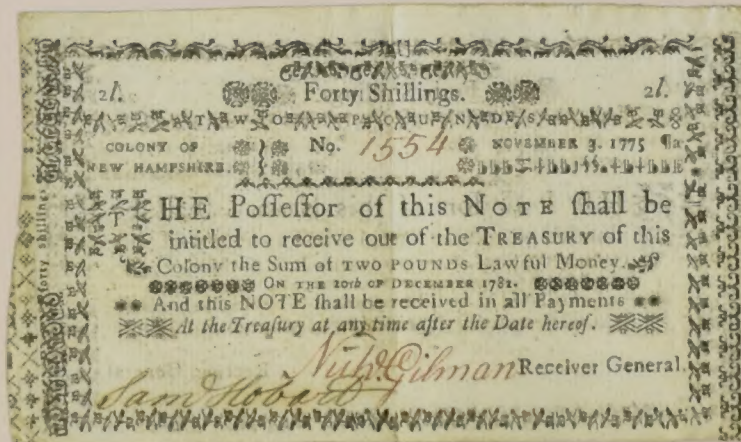 Forty Shillings.
2l. 2l.
TWO POUNDS
COLONY OF
NEW HAMPSHIRE.
No. 1554
NOVEMBER 3. 1775
THE Poſſeſſor of this NOTE ſhall be
intitled to receive out of the TREASURY of this
Colony the Sum of TWO POUNDS Lawful Money.
ON THE 20th OF DECEMBER 1782.
And this NOTE ſhall be received in all Payments
At the Treaſury at any time after the Date hereof.
Nichº Gilman Receiver General.
Samˡ Hobart
forty shillings